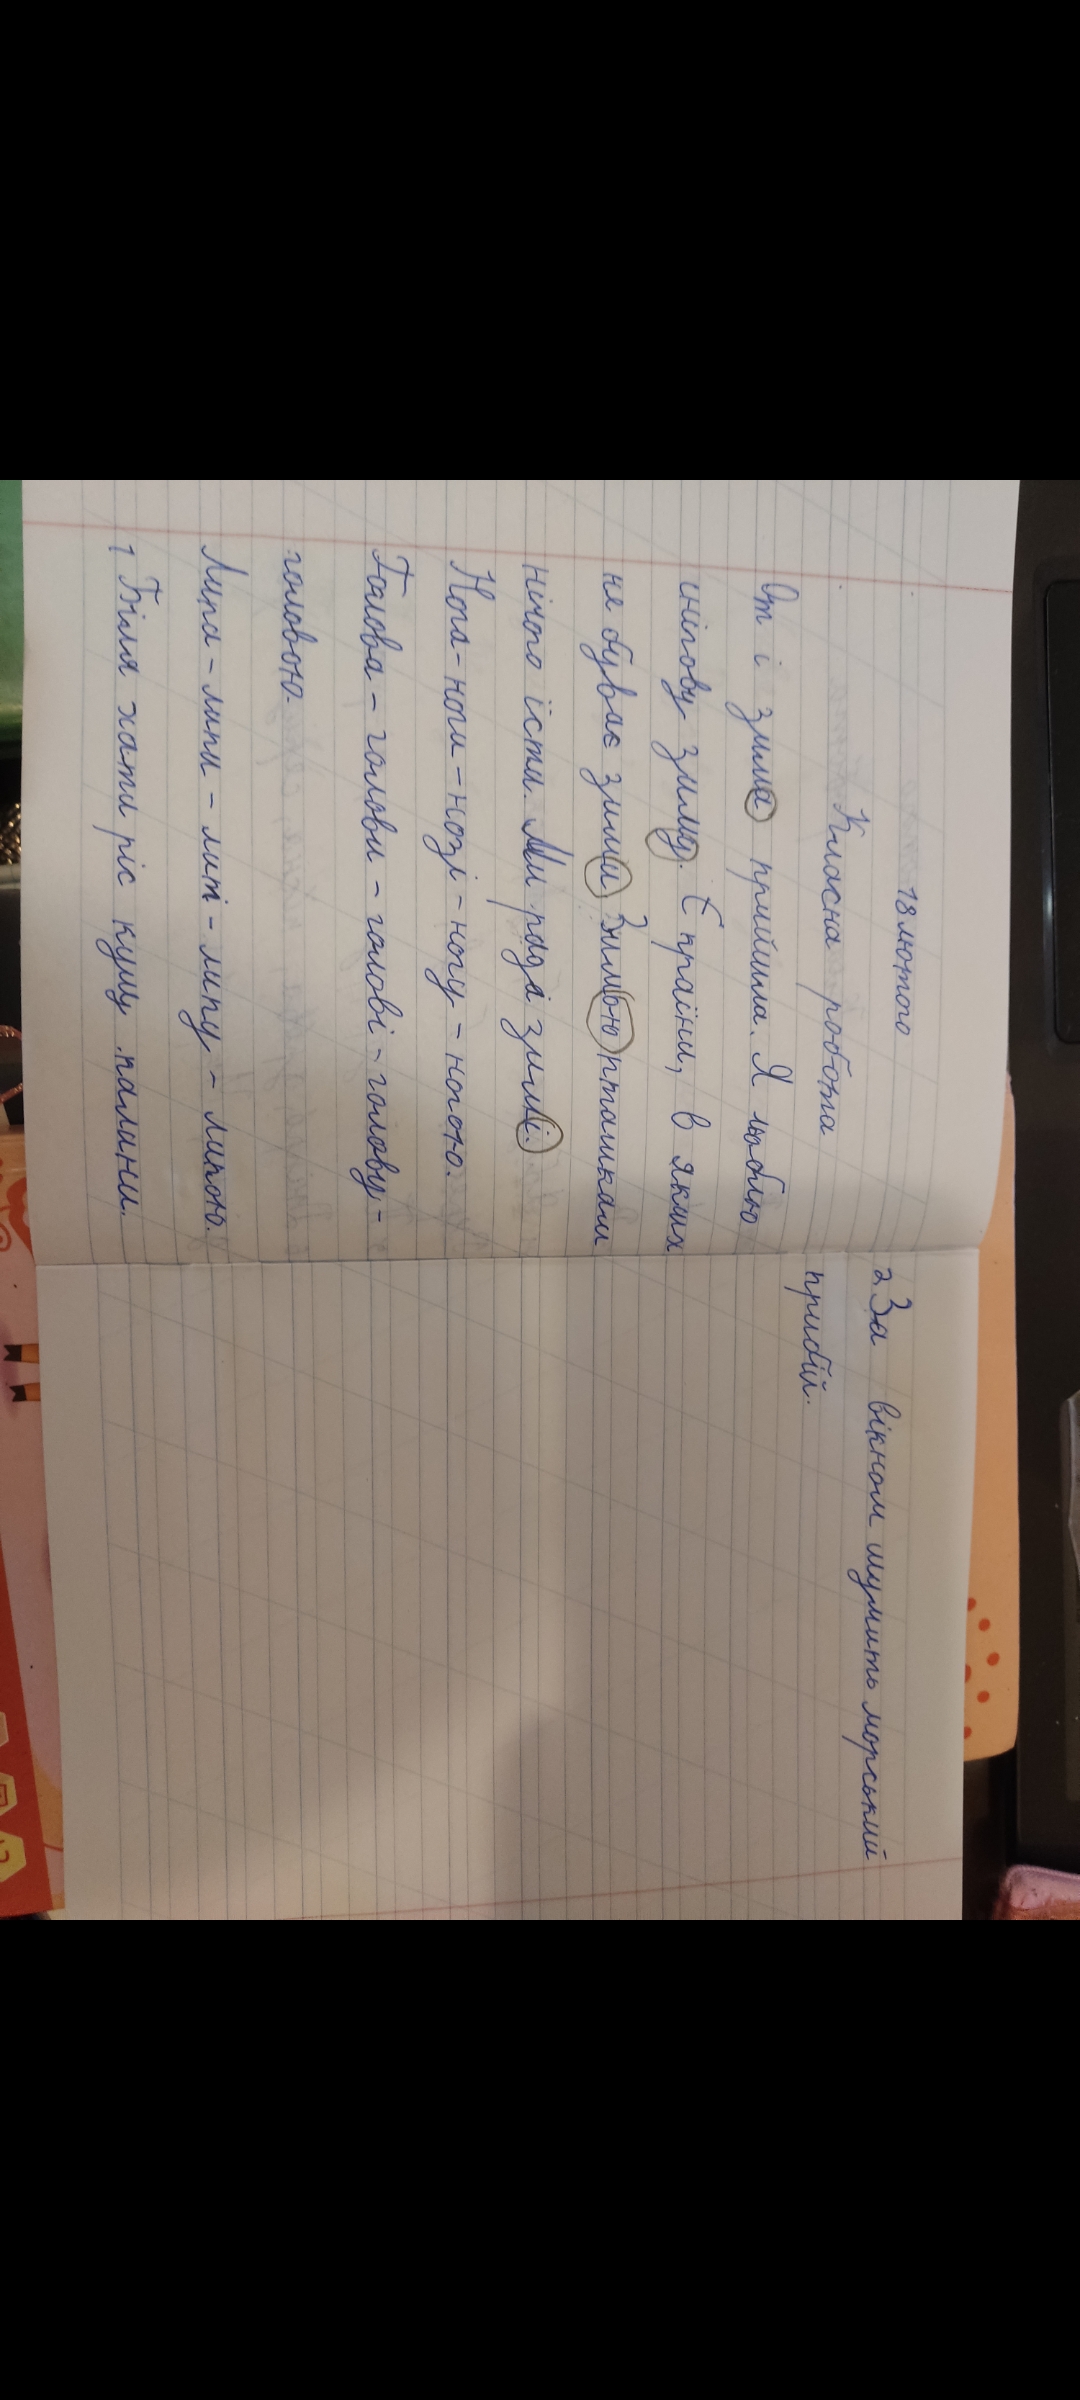 18 лютого
Класна робота
От і зима прийшла. Я люблю
снігову зиму. Є країни, в яких
не буває зими Зимою пташкам
нічого їсти. Ми раді зимі.
Нога - ноги - нозі - ногу - ногою.
Голова - голови - голові - голову -
головою.
Липа - липи - липі - липу - липою.
1 Біля хати ріс кущ калини.
2 За вікном шумить морський
прибій.